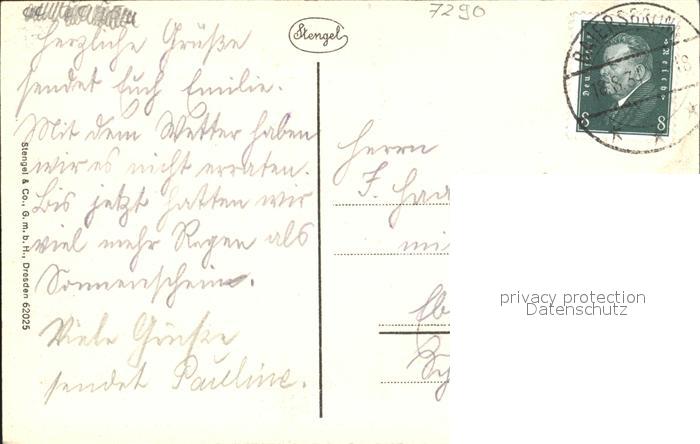 7290
Stengel
BAIERSBRONN
18.8.30
18
Deutsches Reich
8 8
Herzliche Grüße
sendet Euch Emilie.
Mit dem Wetter haben
wir es nicht erraten.
Bis jetzt hatten wir
viel mehr Regen als
Sonnenschein.
Viele Grüße
sendet Pauline.
Stengel & Co., G. m. b. H., Dresden 62025
Herrn
F. Haa
mi
Eb
privacy protection
Datenschutz